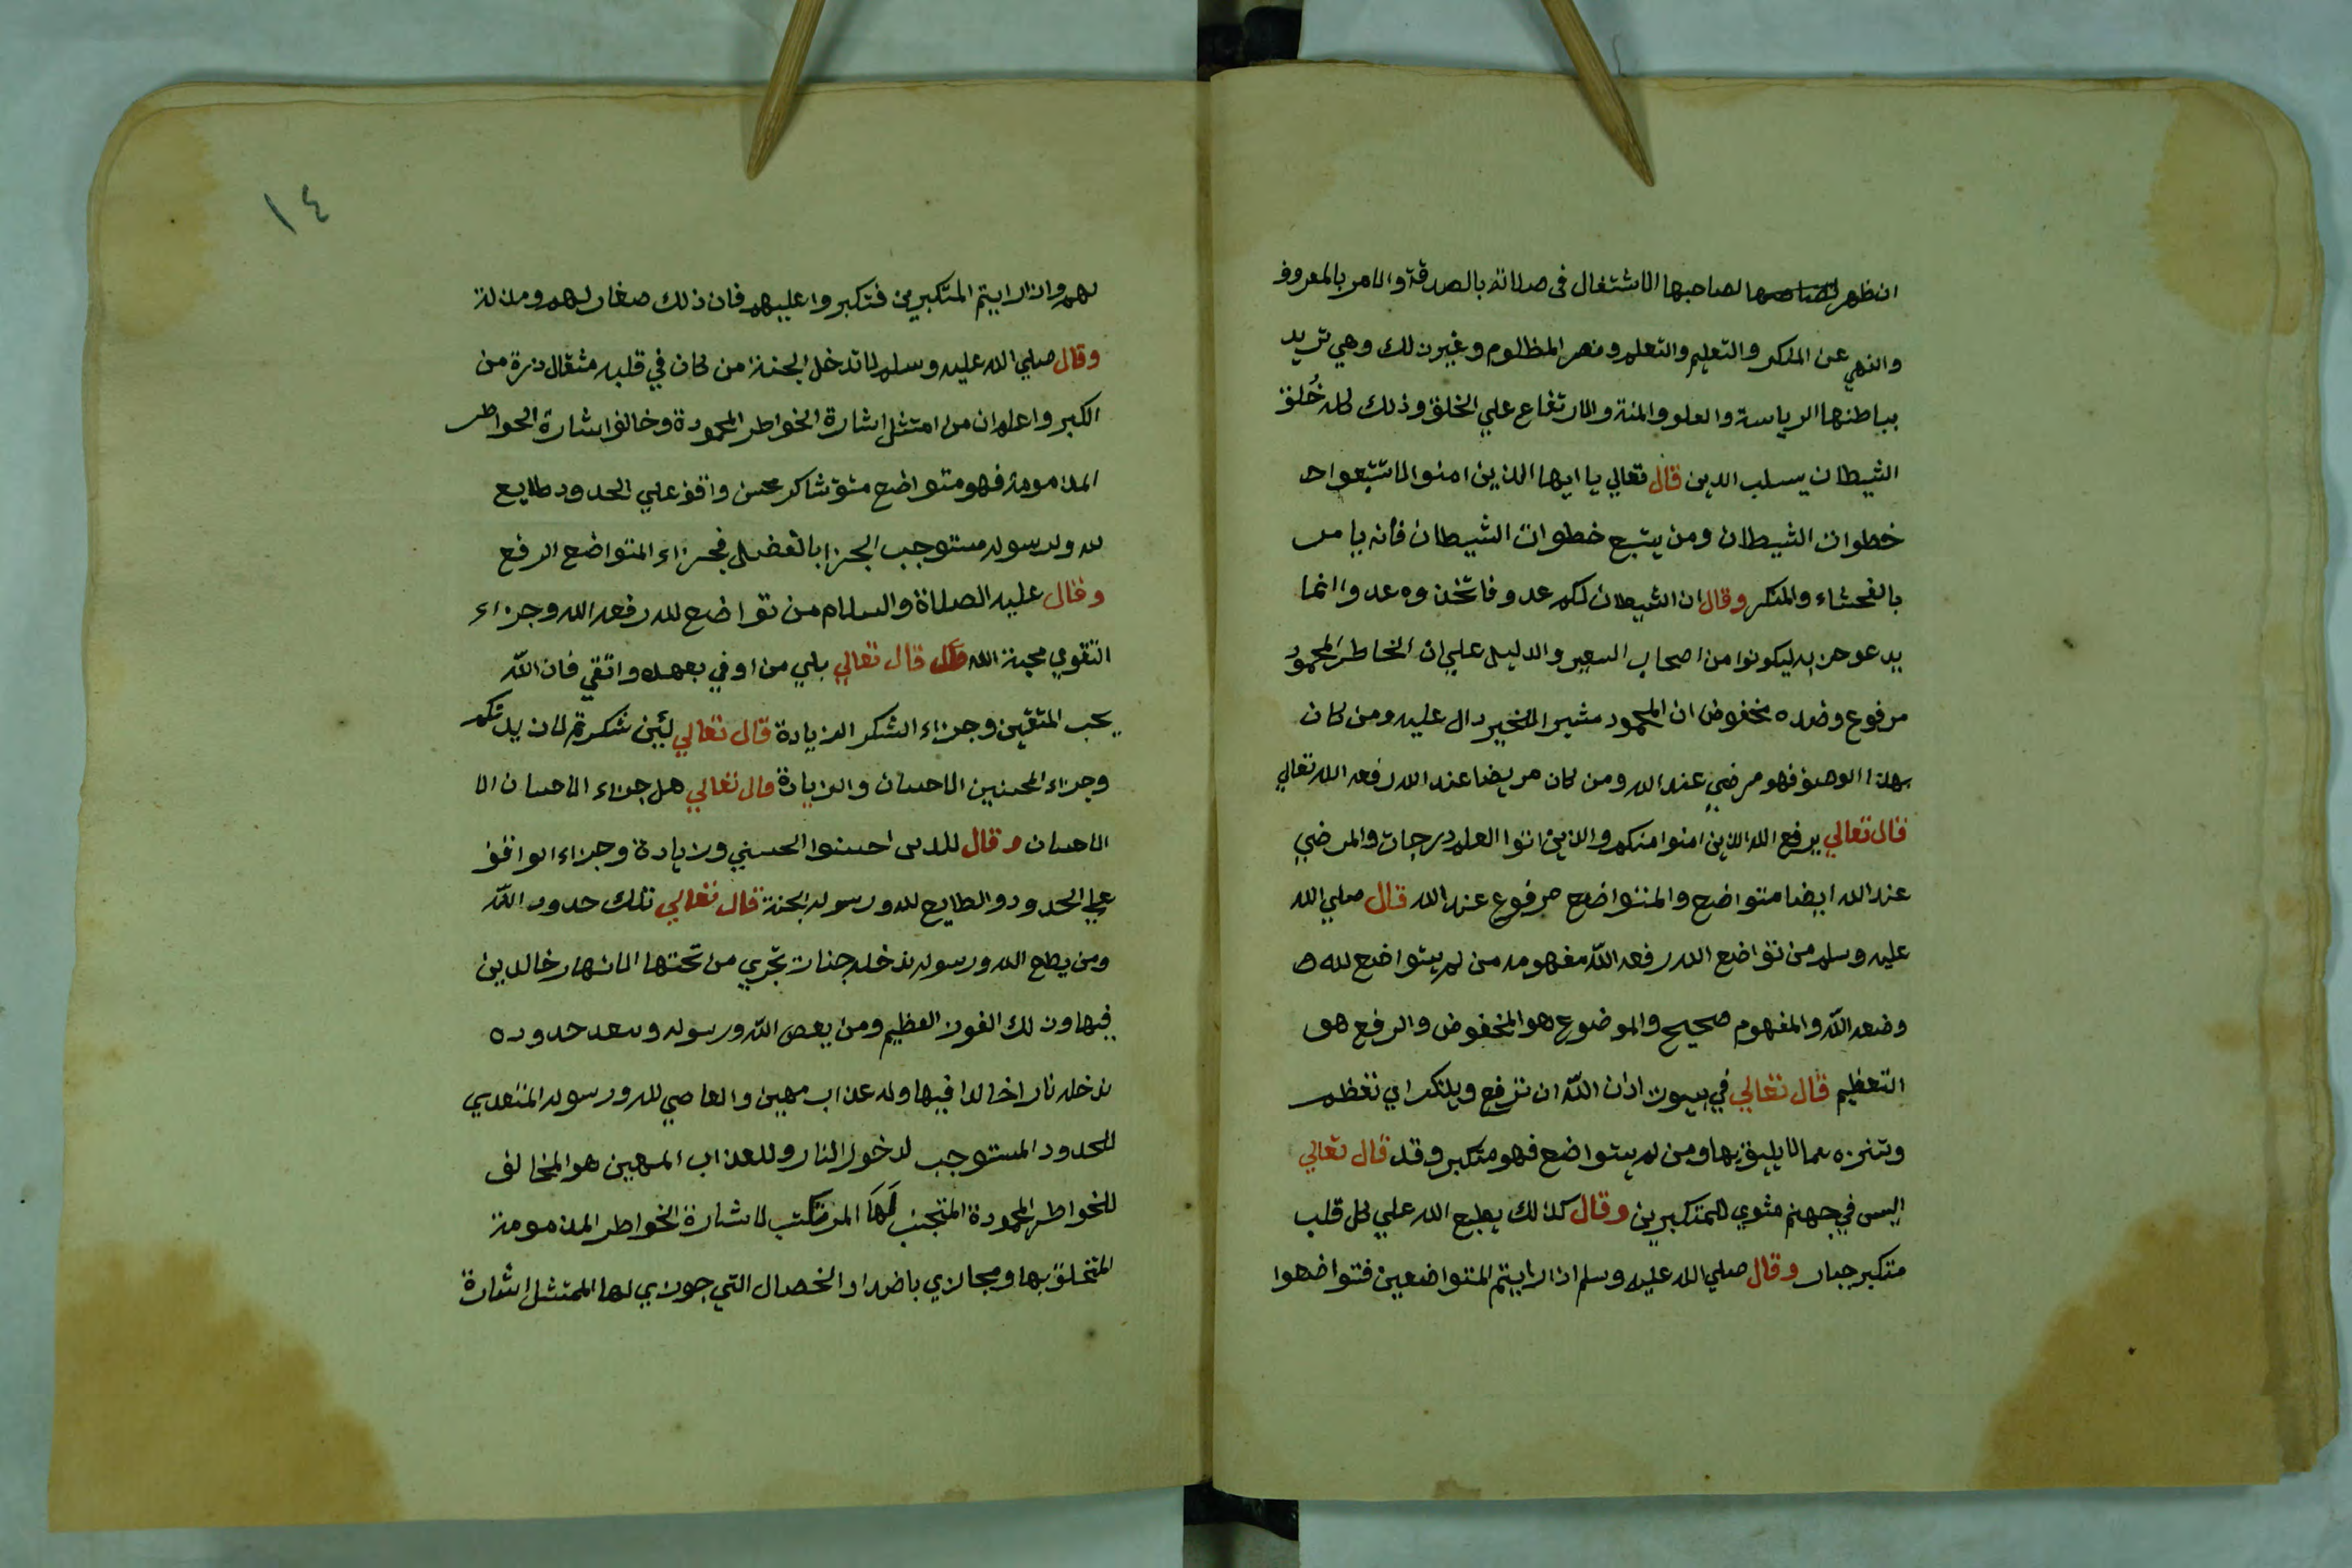 ان ظهر لصاحبها الاشتغال في صلاته بالصدقة والامر بالمعروف
والنهي عن المنكر والتعليم والتعلم ونصر المظلوم وغير ذلك وهي تريد
بباطنها الرياسة والعلو والمنة والارتفاع علي الخلق وذلك كله خُلق
الشيطان يسلب الدين قال تعالي يا ايها الذين امنوا لا تتبعوا
خطوات الشيطان ومن يتبع خطوات الشيطان فانه يامر
بالفحشاء والمنكر وقال ان الشيطان لكم عدو فاتخذوه عدوا انما
يدعو حزبه ليكونوا من اصحاب السعير والدليل علي ان الخاطر المحمود
مرفوع وضده مخفوض ان المحمود مشير الخير دال عليه ومن كان
بهذا الوصف فهو مرضي عند الله ومن كان مريضا عند الله رفعه الله تعالي
قال تعالي يرفع الله الذين امنوا منكم والذين اتوا العلم درجات والمرضي
عند الله ايضا متواضع والمتواضع مرفوع عند الله قال صلي الله
عليه وسلم من تواضع الله رفعه الله مفهومه من لم يتواضع لله
وضعه الله والمفهوم صحيح والموضوع هو المخفوض والرفع هو
التعظيم قال تعالي في بيوت اذن الله ان ترفع ويذكر اي تعظم
وتنزه عما لا يليق بها ومن لم يتواضع فهو متكبر وقد قال تعالي
اليس في جهنم مثوي للمتكبرين وقال كذلك يطبع الله علي كل قلب
متكبر جبار وقال صلي الله عليه وسلم اذا رايتم المتواضعين فتواضعوا
١٤
لهم واذا رايتم المتكبرين فتكبروا عليهم فان ذلك صغار لهم ومذلة
وقال صلي الله عليه وسلم لا تدخل الجنة من كان في قلبه مثقال ذرة من
الكبر واعلم ان من امتثل اشارة الخواطر المحمودة وخالف اشارة الخواطر
المذمومة فهو متواضع متق شاكر محسن واقف علي الحدود طايع
لله ولرسوله مستوجب الجزا بالفضل فجزاء المتواضع الرفع
وقال عليه الصلاة والسلام من تواضع لله رفعه الله وجزاء
التقوي محبة الله قال تعالي بلي من اوفي بعهده واتقي فان الله
يحب المتقين وجزاء الشكر الزيادة قال تعالي لئن شكرتم لازيدنكم
وجزاء المحسنين الاحسان والزيادة قال تعالي هل جزاء الاحسان الا
الاحسان وقال للذين احسنوا الحسني وزيادة وجزاء الواقف
علي الحدود والطايع لله ورسوله الجنة قال تعالي تلك حدود الله
ومن يطع الله ورسوله ندخله جنات تجري من تحتها الانهار خالدين
فيها وذلك الفوز العظيم ومن يعص الله ورسوله ويتعد حدوده
ندخله نارا خالدا فيها وله عذاب مهين والعاصي لله ورسوله المتعدي
للحدود المستوجب لدخول النار وللعذاب المهين هو المخالف
للخواطر المحمودة المتجنب لها المرتكب لاشارة الخواطر المذمومة
المتخلق بها ومجازي باضداد الخصال التي جوزي لها الممتثل اشارة